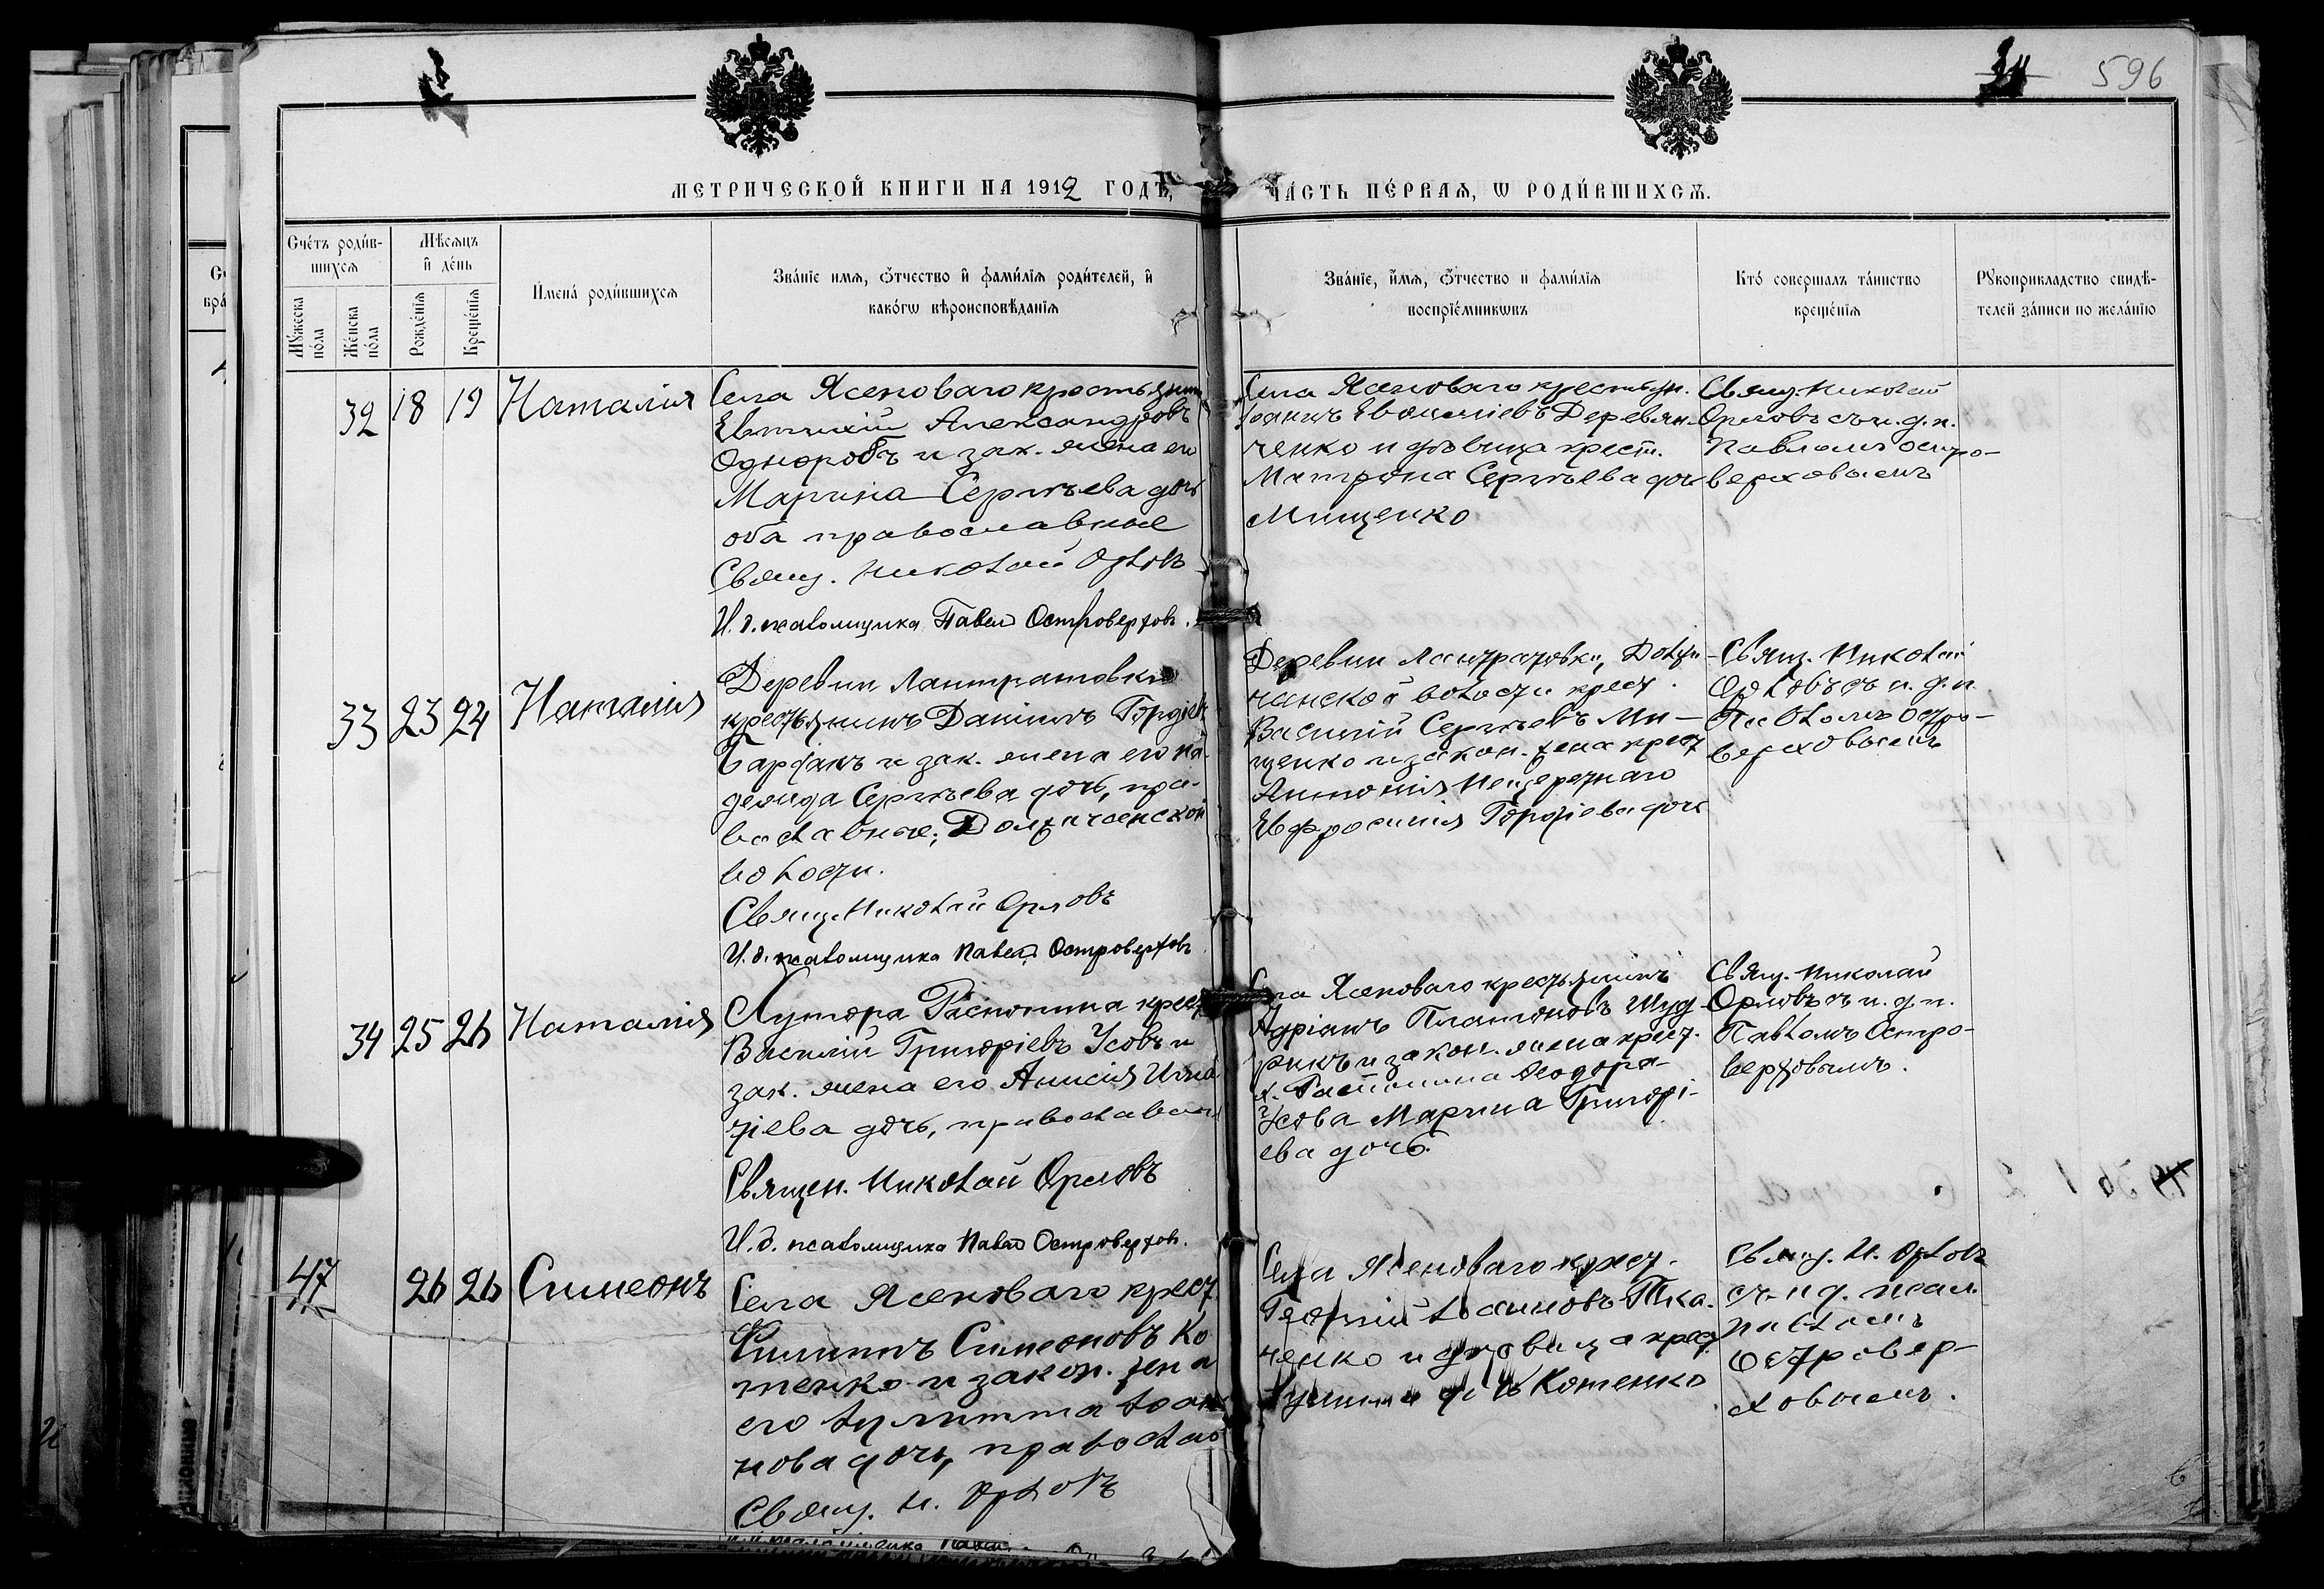 596
МЕТРИЧЕСКОЙ КНИГИ НА 1912 ГОДЪ,
ЧА́СТЬ ПЕ́РВАЯ, Ѡ РОДИ́ВШИХСѦ.
Сче́тъ роди́в-
шихсѧ
Мꙋжеска
по́ла
Же́нска
по́ла
Мѣ́сѧцъ
и҆ де́нь
Рожде́нїѧ
Креще́нїѧ
И҆мена́ роди́вшихсѧ
Зва́нїе имѧ, ѻ҆́тчество и҆ фами́лїѧ роди́телей, и҆
како́гѡ вѣроисповѣ́данїѧ
Зва́нїе, и҆́мѧ, ѻ҆́тчество и фами́лїѧ
воспрїе́мникѡвъ
Кто́ соверша́лъ та́инство
креще́нїѧ
Рꙋкоприкладство свидѣ́-
телей за́писи по жела́нїю
32 18 19 Наталия
Села Ясеноваго крестьянинъ
Евтихій Александровъ
Однорогъ и зак. жена его
Марина Сергѣева дочь
оба православные
Свящ. Николай Орловъ
И. д. псаломщика Павелъ Островерховъ.
Села Ясеноваго крестьян.
Іоаннъ Деревян-
ченко и дѣвица крест.
Матрона Сергѣева дочь
Мищенко
Свящ. Николай
Орловъ съ и. д. п.
Павломъ Остро-
верховымъ
33 23 24 Наталія
Деревни Лантратовки
крестьянинъ Даніилъ Гордіевъ
и зак. жена его На-
дежда Сергѣева дочь, пра-
вославные, Должанской
волости.
Свящ. Николай Орловъ
И. д. псаломщика Павелъ Островерховъ
Деревни Лантратовки, Долж-
анской волости крест.
Василій Сергѣевъ Ми-
щенко и закон. жена крест.
Антонія
Евфросинія Гордіева дочь
Свящ. Николай
Орловъ съ и. д. п.
Павломъ Остро-
верховымъ
34 25 26 Наталія
Хутора Распопина крест.
Василій Григоріевъ Усовъ и
зак. жена его Анисія Игна-
тіева дочь, православн.
Священ. Николай Орловъ
И. д. псаломщика Павелъ Островерховъ.
Села Ясеноваго крестьянинъ
Адріанъ Платоновъ Шуд-
рикъ и закон. жена крест.
х. Распопина Ѳеодора
Усова Марина Григорі-
ева дочь.
Свящ. Николай
Орловъ съ и. д. п.
Павломъ Остро-
верховымъ.
47 26 26 Симеонъ
Села Ясеноваго крест.
Филиппъ Симеоновъ Ко-
тенко и закон. жена
его Іулитта Іоан-
нова дочь, православ
Свящ. Н. Орловъ
Села Ясеноваго крест.
Георгій Іоанновъ Тка-
ченко и дѣвица крест.
Котенко
Свящ. Н. Орловъ
съ и д. псал.
Павломъ
Островер-
ховымъ.